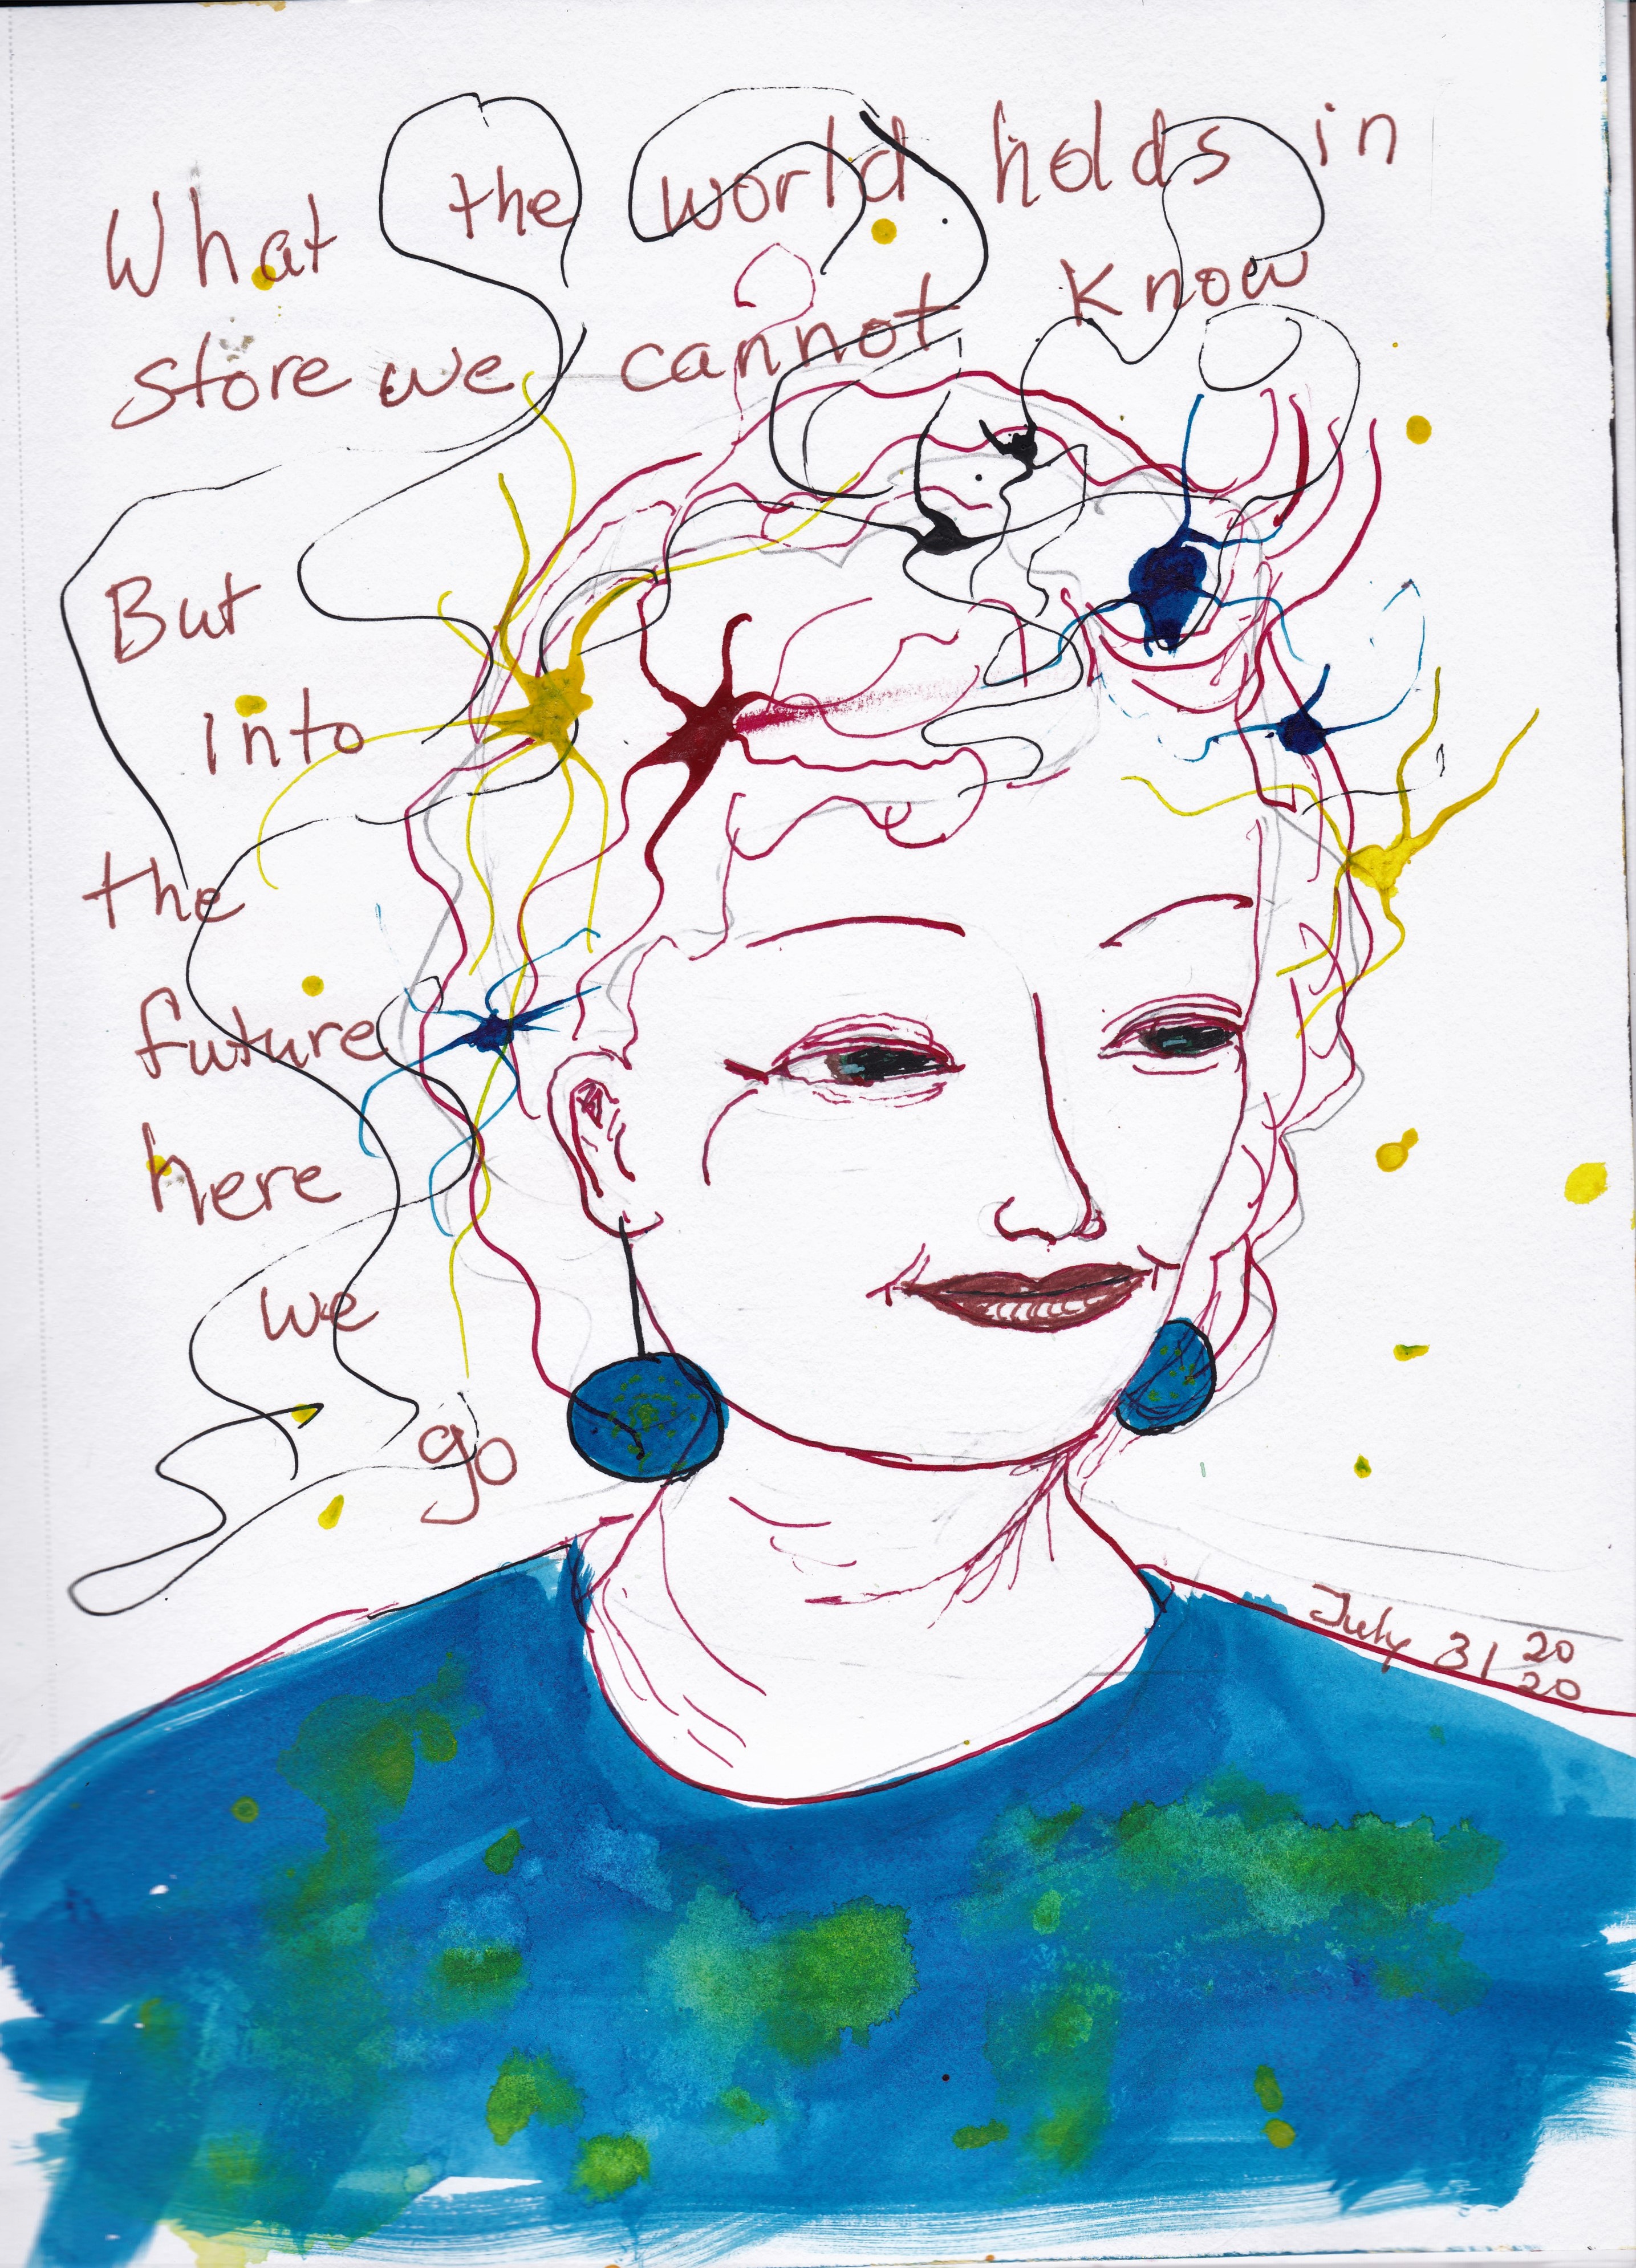 What the world holds in
store we cannot know
But
into
the
future
here
we
go
July 31 20
20